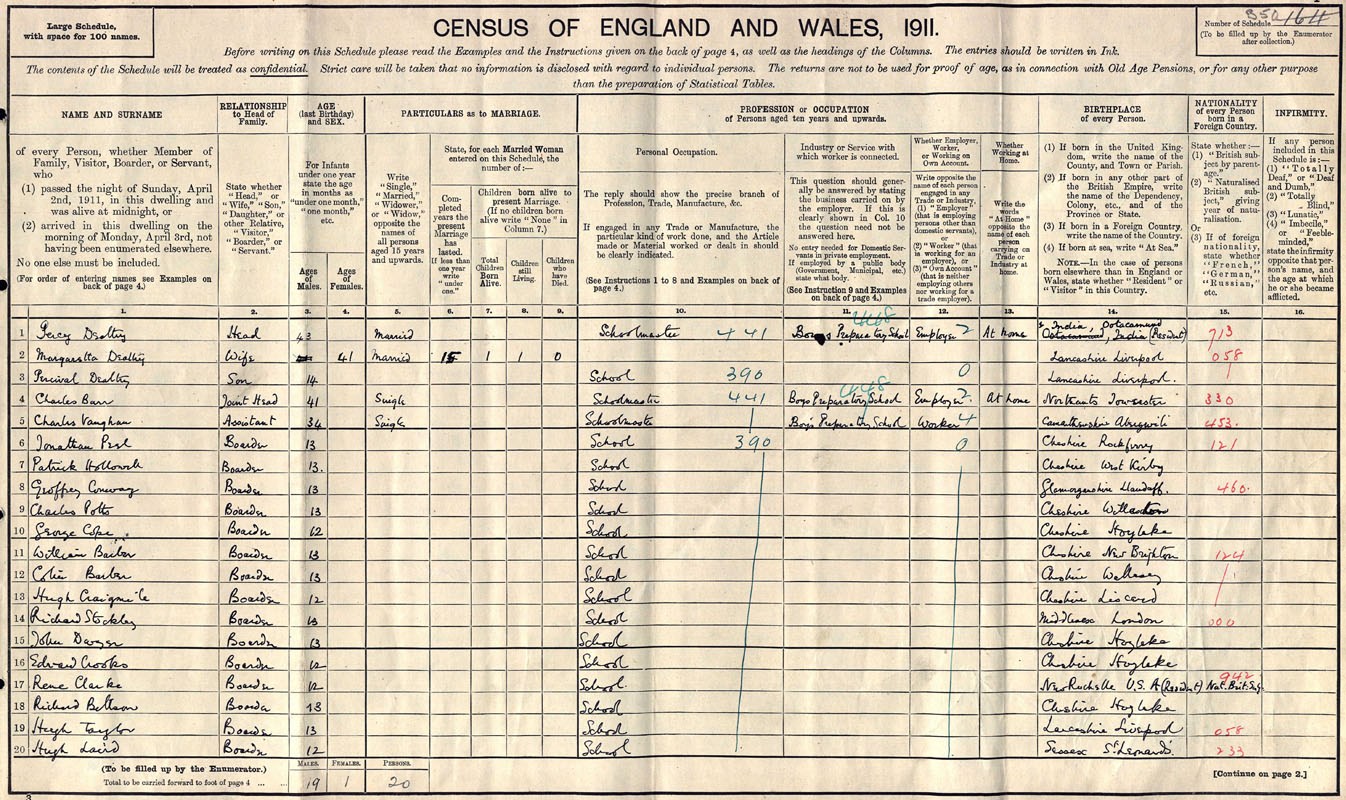 Large Schedule,
with space for 100 names.
CENSUS OF ENGLAND AND WALES, 1911.
B52 164
Number of Schedule
(To be filled up by the Enumerator
after collection.)
Before writing on this Schedule please read the Examples and the Instructions given on the back of page 4, as well as the headings of the Columns. The entries should be written in Ink.
The contents of the Schedule will be treated as confidential. Strict care will be taken that no information is disclosed with regard to individual persons. The returns are not to be used for proof of age, as in connection with Old Age Pensions, or for any other purpose
than the preparation of Statistical Tables.
NAME AND SURNAME
of every Person, whether Member of
Family, Visitor, Boarder, or Servant,
who
(1) passed the night of Sunday, April
2nd, 1911, in this dwelling and
was alive at midnight, or
(2) arrived in this dwelling on the
morning of Monday, April 3rd, not
having been enumerated elsewhere.
No one else must be included.
(For order of entering names see Examples on
back of page 4.)
1.
RELATIONSHIP
to Head of
Family.
State whether
"Head," or
"Wife," "Son,"
"Daughter," or
other Relative,
"Visitor,"
"Boarder," or
"Servant."
2.
AGE
(last Birthday)
and SEX.
For Infants
under one year
state the age
in months as
"under one month,"
"one month,"
etc.
Ages
of
Males.
3.
Ages
of
Females.
4.
PARTICULARS as to MARRIAGE.
Write
"Single,"
"Married,"
"Widower,"
or "Widow,"
opposite the
names of
all persons
aged 15 years
and upwards.
5.
State, for each Married Woman
entered on this Schedule, the
number of:—
Com-
pleted
years the
present
Marriage
has
lasted.
If less than
one year
write
"under
one."
6.
Children born alive to
present Marriage.
(If no children born
alive write "None" in
Column 7.)
Total
Children
Born
Alive.
7.
Children
still
Living.
8.
Children
who
have
Died.
9.
PROFESSION or OCCUPATION
of Persons aged ten years and upwards.
Personal Occupation.
The reply should show the precise branch of
Profession, Trade, Manufacture, &c.
If engaged in any Trade or Manufacture, the
particular kind of work done, and the Article
made or Material worked or dealt in should
be clearly indicated.
(See Instructions 1 to 8 and Examples on back of
page 4.)
10.
Industry or Service with
which worker is connected.
This question should gener-
ally be answered by stating
the business carried on by
the employer. If this is
clearly shown in Col. 10
the question need not be
answered here.
No entry needed for Domestic Ser-
vants in private employment.
If employed by a public body
(Government, Municipal, etc.)
state what body.
(See Instruction 9 and Examples
on back of page 4.)
11.
Whether Employer,
Worker,
or Working on
Own Account.
Write opposite the
name of each person
engaged in any
Trade or Industry,
(1) "Employer"
(that is employing
persons other than
domestic servants),
or
(2) "Worker" (that
is working for an
employer), or
(3) "Own Account"
(that is neither
employing others
nor working for a
trade employer).
12.
Whether
Working at
Home.
Write the
words
"At Home"
opposite the
name of each
person
carrying on
Trade or
Industry at
home.
13.
BIRTHPLACE
of every Person.
(1) If born in the United King-
dom, write the name of the
County, and Town or Parish.
(2) If born in any other part of
the British Empire, write
the name of the Dependency,
Colony, etc., and of the
Province or State.
(3) If born in a Foreign Country,
write the name of the Country.
(4) If born at sea, write "At Sea."
NOTE.—In the case of persons
born elsewhere than in England or
Wales, state whether "Resident" or
"Visitor" in this Country.
14.
NATIONALITY
of every Person
born in a
Foreign Country.
State whether:—
(1) "British sub-
ject by parent-
age."
(2) "Naturalised
British sub-
ject," giving
year of natu-
ralisation.
Or
(3) If of foreign
nationality,
state whether
"French,"
"German,"
"Russian,"
etc.
15.
INFIRMITY.
If any person
included in this
Schedule is:—
(1) "Totally
Deaf," or "Deaf
and Dumb,"
(2) "Totally
Blind,"
(3) "Lunatic,"
(4) "Imbecile,"
or "Feeble-
minded,"
state the infirmity
opposite that per-
son's name, and
the age at which
he or she became
afflicted.
16.
1 Percy Dealtry Head 43 Married Schoolmaster 441 Boys Preparatory School 448 Employer 2 At home India, Ootacamund India (Resident) 713
2 Margaretta Dealtry Wife 41 Married 15 1 1 0 Lancashire Liverpool 058
3 Percival Dealtry Son 14 School 390 0 Lancashire Liverpool.
4 Charles Barr Joint Head 41 Single Schoolmaster 441 Boys Preparatory School 448 Employer 2 At home Northants Towcester 330
5 Charles Vaughan Assistant 34 Single Schoolmaster Boys Preparatory School Worker 4 Carmarthenshire Abergwili 453.
6 Jonathan Peel Boarder 13 School 390 0 Cheshire Rockferry 121
7 Patrick Boarder 13. School Cheshire West Kirby
8 Geoffrey Conway Boarder 13 School Glamorganshire Llandaff. 460.
9 Charles Potts Boarder 13 School Cheshire
10 George Cope Boarder 12 School Cheshire Hoylake
11 William Barber Boarder 13 School Cheshire New Brighton 124
12 Colin Barber Boarder 13 School Cheshire Wallasey
13 Hugh Craigmile Boarder 12 School Cheshire Liscard
14 Richard Stockley Boarder 13 School Middlesex London 000
15 John Boarder 13 School Cheshire Hoylake
16 Edward Crooks Boarder 12 School Cheshire Hoylake
17 Rene Clarke Boarder 12 School New Rochelle U.S.A (Resident) Nat. Brit. Sub. 942
18 Richard Boarder 13 School Cheshire Hoylake
19 Hugh Taylor Boarder 13 School Lancashire Liverpool 058
20 Hugh Laird Boarder 12 School Sussex St Leonards 233
(To be filled up by the Enumerator.)
Total to be carried forward to foot of page 4
MALES.
19
FEMALES.
1
PERSONS.
20
[Continue on page 2.]
3